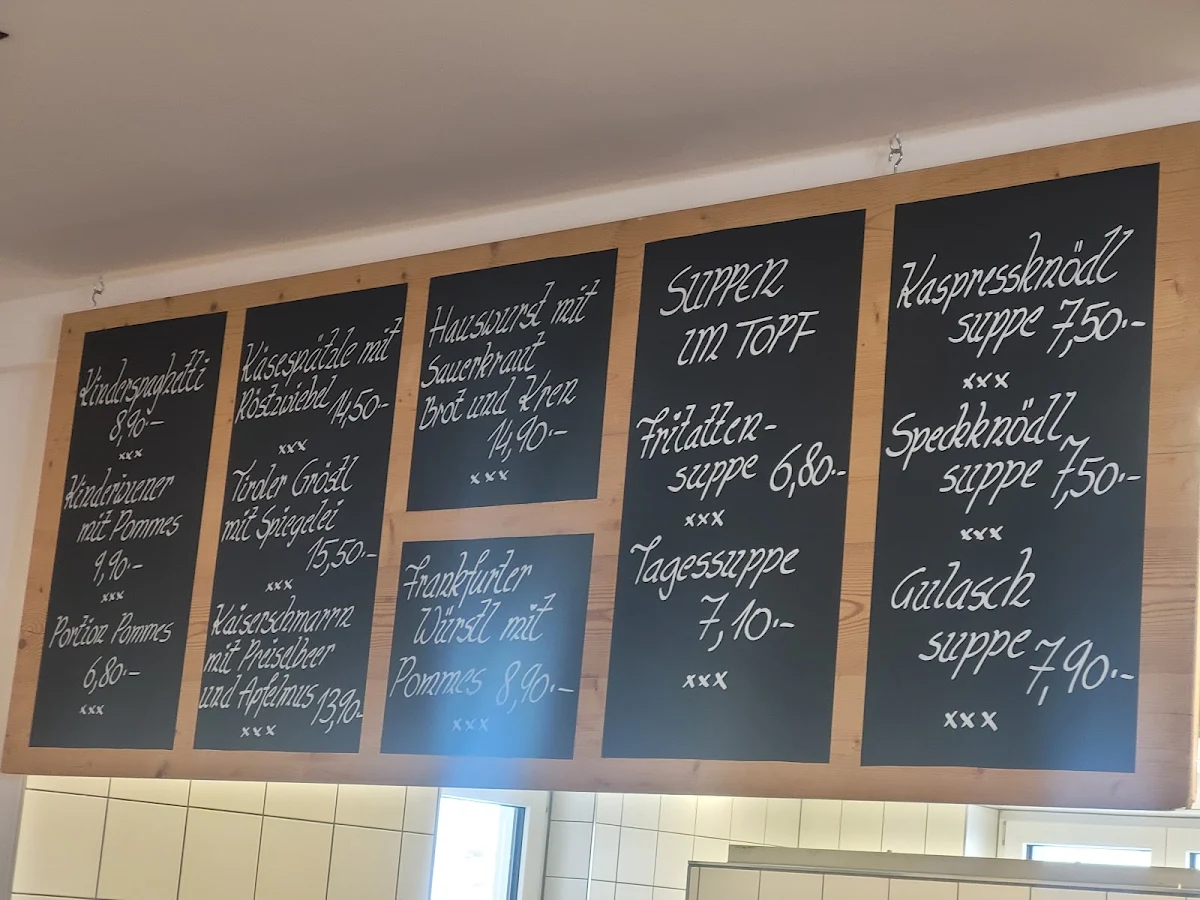 Kinderspaghetti
8,90.-
xxx
Kinderwiener
mit Pommes
9,90.-
xxx
Portion Pommes
6,80.-
xxx
Käsespätzle mit
Röstzwiebel 14,50.-
xxx
Tiroler Gröstl
mit Spiegelei
15,50.-
xxx
Kaiserschmarrn
mit Preiselbeer
und Apfelmus 13,90.-
xxx
Hauswurst mit
Sauerkraut
Brot und Kren
14,90.-
xxx
Frankfurter
Würstl mit
Pommes 8,90.-
xxx
SUPPEN
IM TOPF
Fritatten-
suppe 6,80.-
xxx
Tagessuppe
7,10.-
xxx
Kaspressknödl
suppe 7,50.-
xxx
Speckknödl
suppe 7,50.-
xxx
Gulasch
suppe 7,90.-
xxx